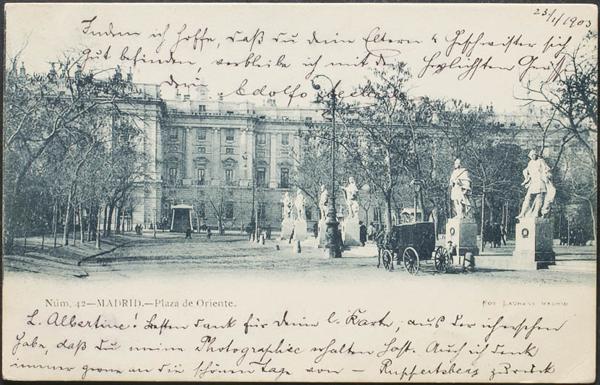 23/1/1903
Indem ich hoffe, daß du dein Eltern & Geschwister sich
gut befinden, verbleibe ich mit den herzlichsten Grüß
dein Adolfo
Núm. 42—MADRID.—Plaza de Oriente.
FOT. LAURENT. MADRID
L. Albertine! Besten Dank für deine l. Karte, aus der ich ersehen
habe, daß du meine Photographie erhalten hast. Auch ich denk
immer gerne an die schönen Tage von — Ruppertsberg zurück